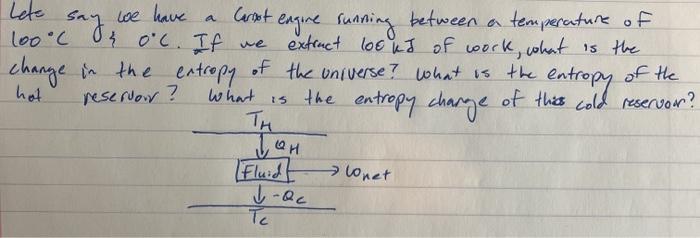 Lets say we have a Carnot engine running between a temperature of
100°C & 0°C. If we extract 100 kJ of work, what is the
change in the entropy of the universe? what is the entropy of the
hot reservoir? What is the entropy change of this cold reservoir?
TH
↓ QH
Fluid → Wnet
↓ -Qc
Tc